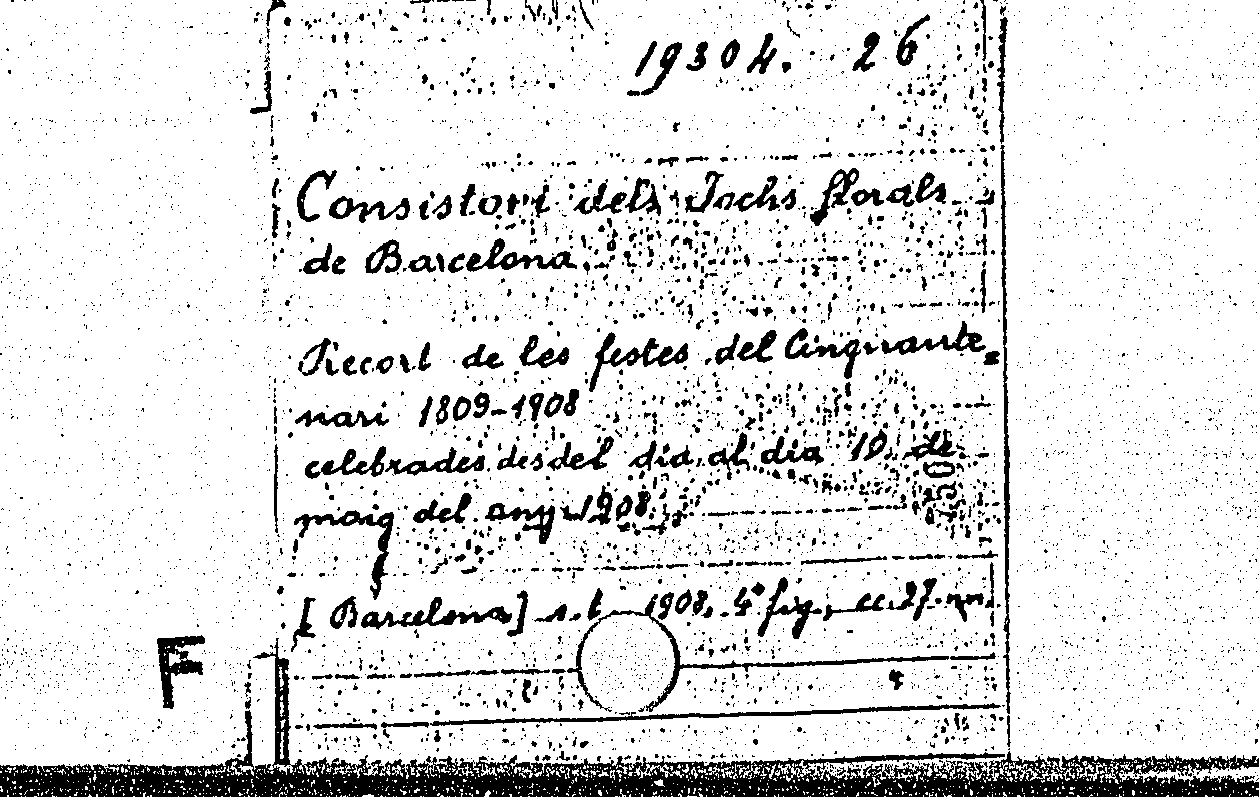 19304. 26
Consistori dels Jochs florals
de Barcelona
Record de les festes del Cinquante=
nari 1809-1908
celebrades desdel dia al dia 10 de
maig del any 1908
[Barcelona] s.t. 1908, 4º fig., cc. 27
F